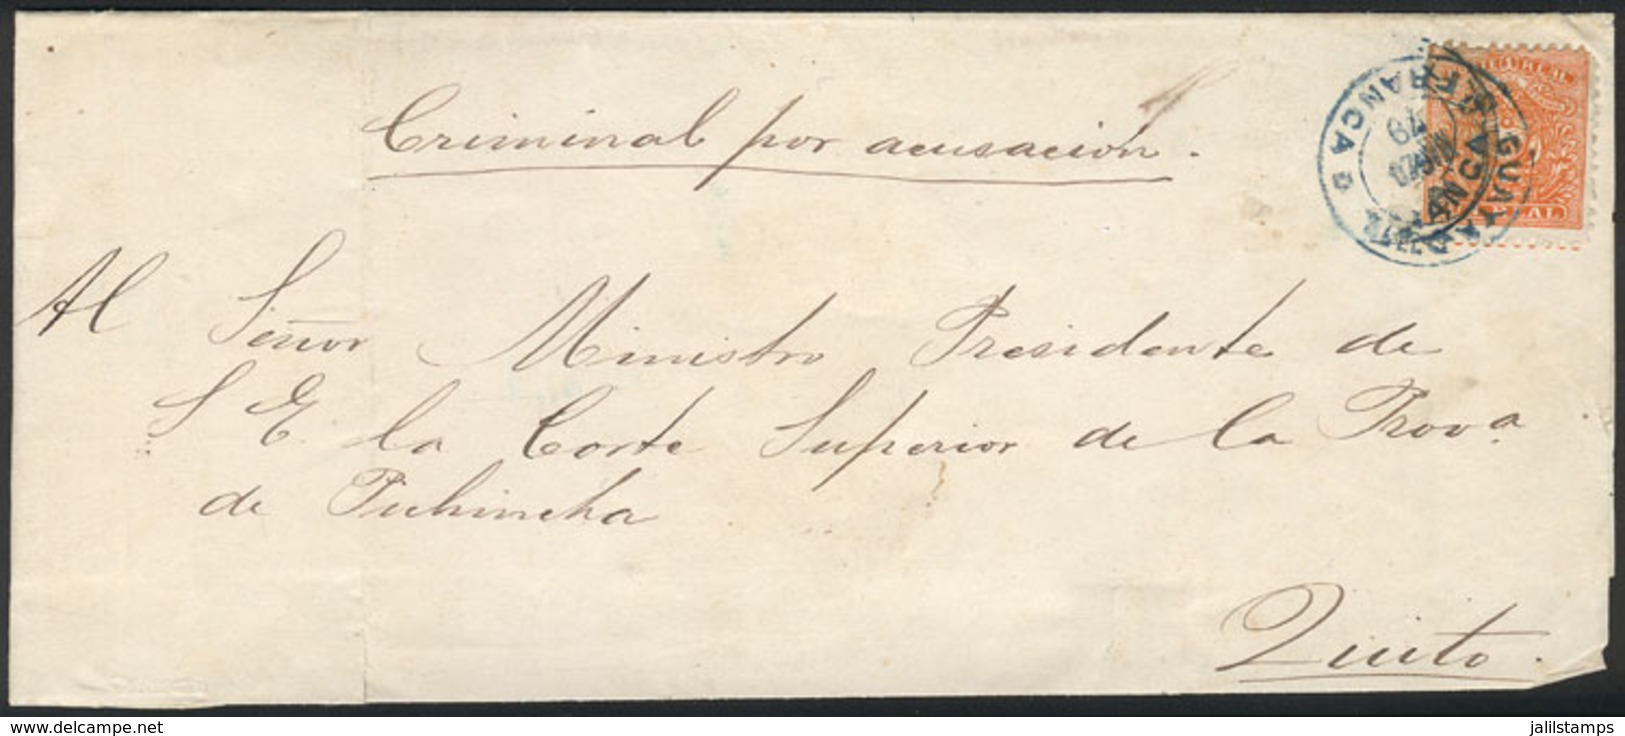 Criminal por acusación.
Al Señor Ministro Presidente de
S E. la Corte Superior de la Prova
de Pichincha
Quito.
FRANCA
GUAYAQUIL
FRANCA
79
UN REAL
www.delcampe.net
jalilstamps